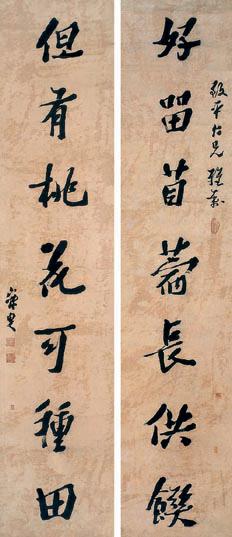 好留苜蓿長供饌
平仁兄雅
但有桃花可種田